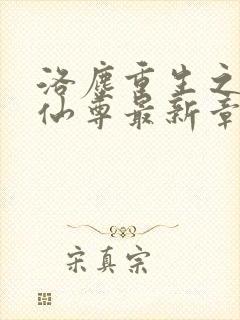 洛尘重生之
仙尊最新章
宋真宗